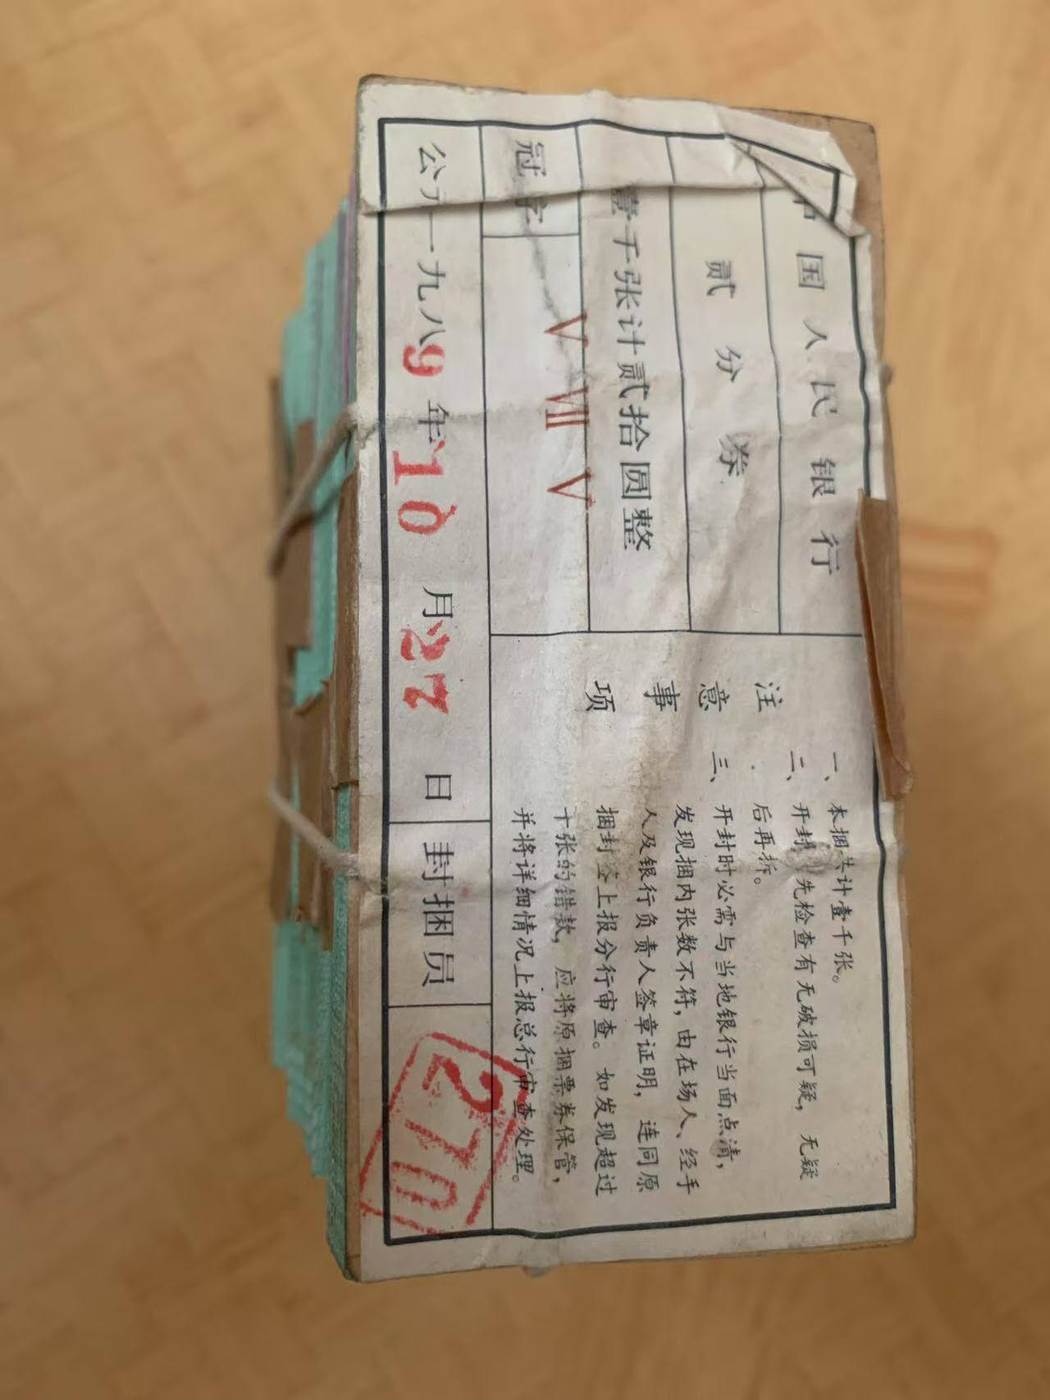 中国人民银行
贰分券
壹千张计贰拾圆整
冠字 V VII V
公元一九八9年10月27日 封捆员
注意事项
一、本捆共计壹千张。
二、开封前先检查有无破损可疑，无疑
后再拆。
三、开封时必需与当地银行当面点清，
发现捆内张数不符，由在场人、经手
人及银行负责人签章证明，连同原
捆封签上报分行审查。如发现超过
十张的错款，应将原捆票券保管，
并将详细情况上报总行审查处理。